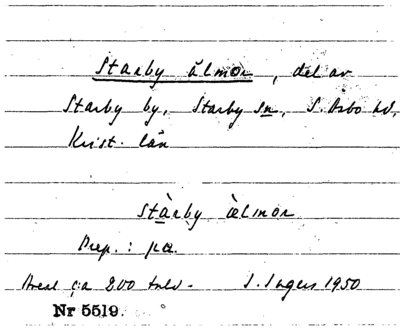 Starby ålmor, del av
Starby by, Starby sn, S. Åsbo hd,
Krist. län
Stàrby àelmor
Prep. : pa.
Areal c:a 200 tnld.
I. Ingers 1950
Nr 5519.